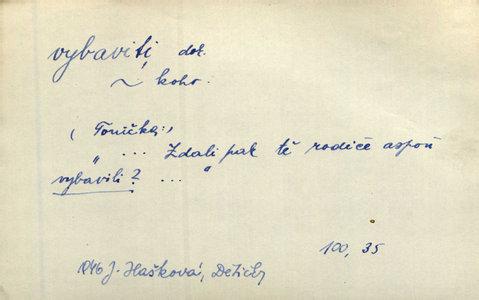 vybaviti dok.
~ koho.
(Tonička:)
„ ... Zdali pak tě rodiče aspoň
vybavili? ... "
100, 35
1946 J. Hašková, Dětičky